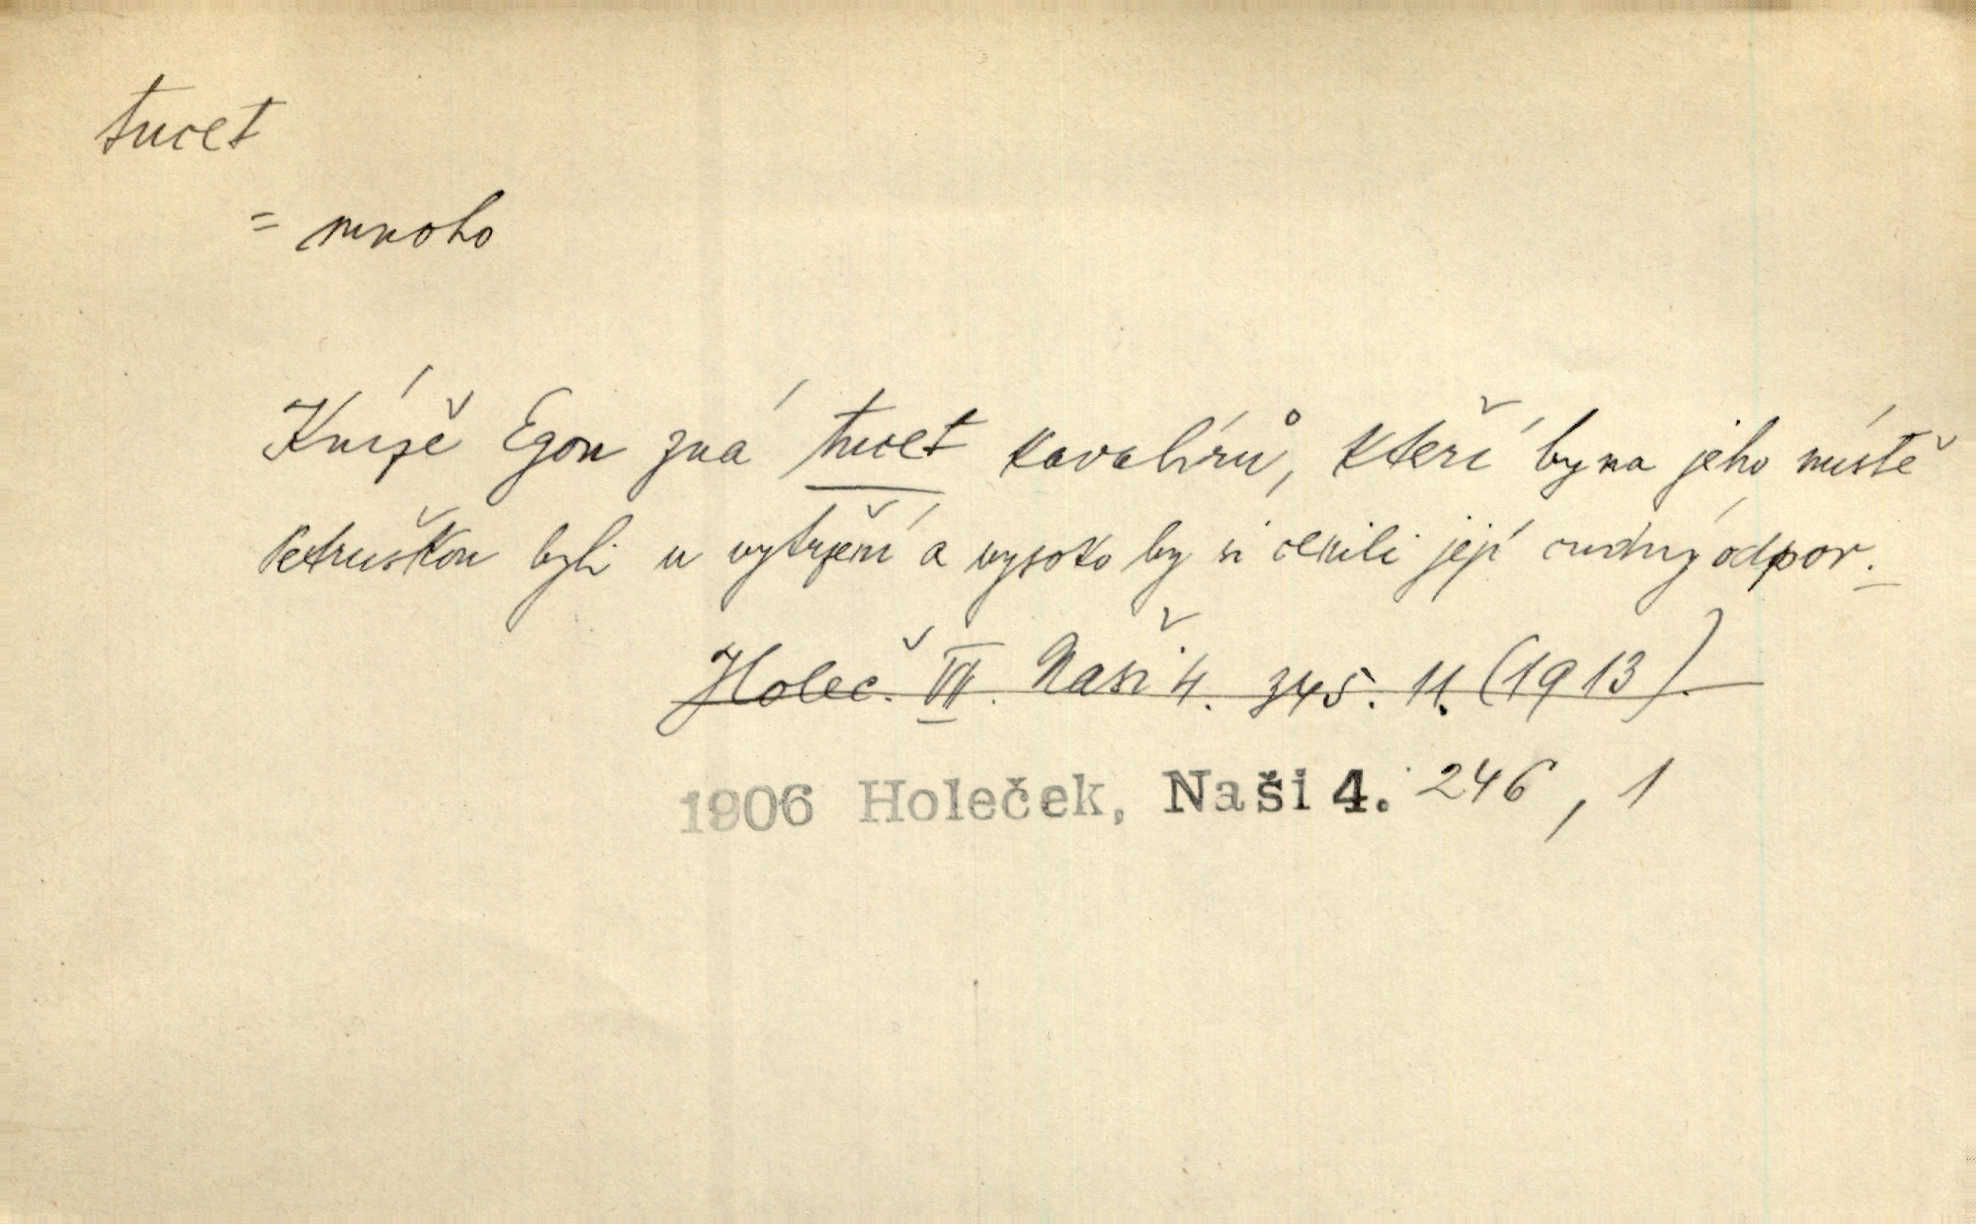 tucet
= mnoho
Kníže Egon zná tucet kavalírů, kteří by na jeho místě
Petruškou byli u vytržení a vysoko by si cenili její cudný odpor.
Holeč. VII. Naši 4. 345. 11. (1913).
1906 Holeček, Naši 4. 246, 1